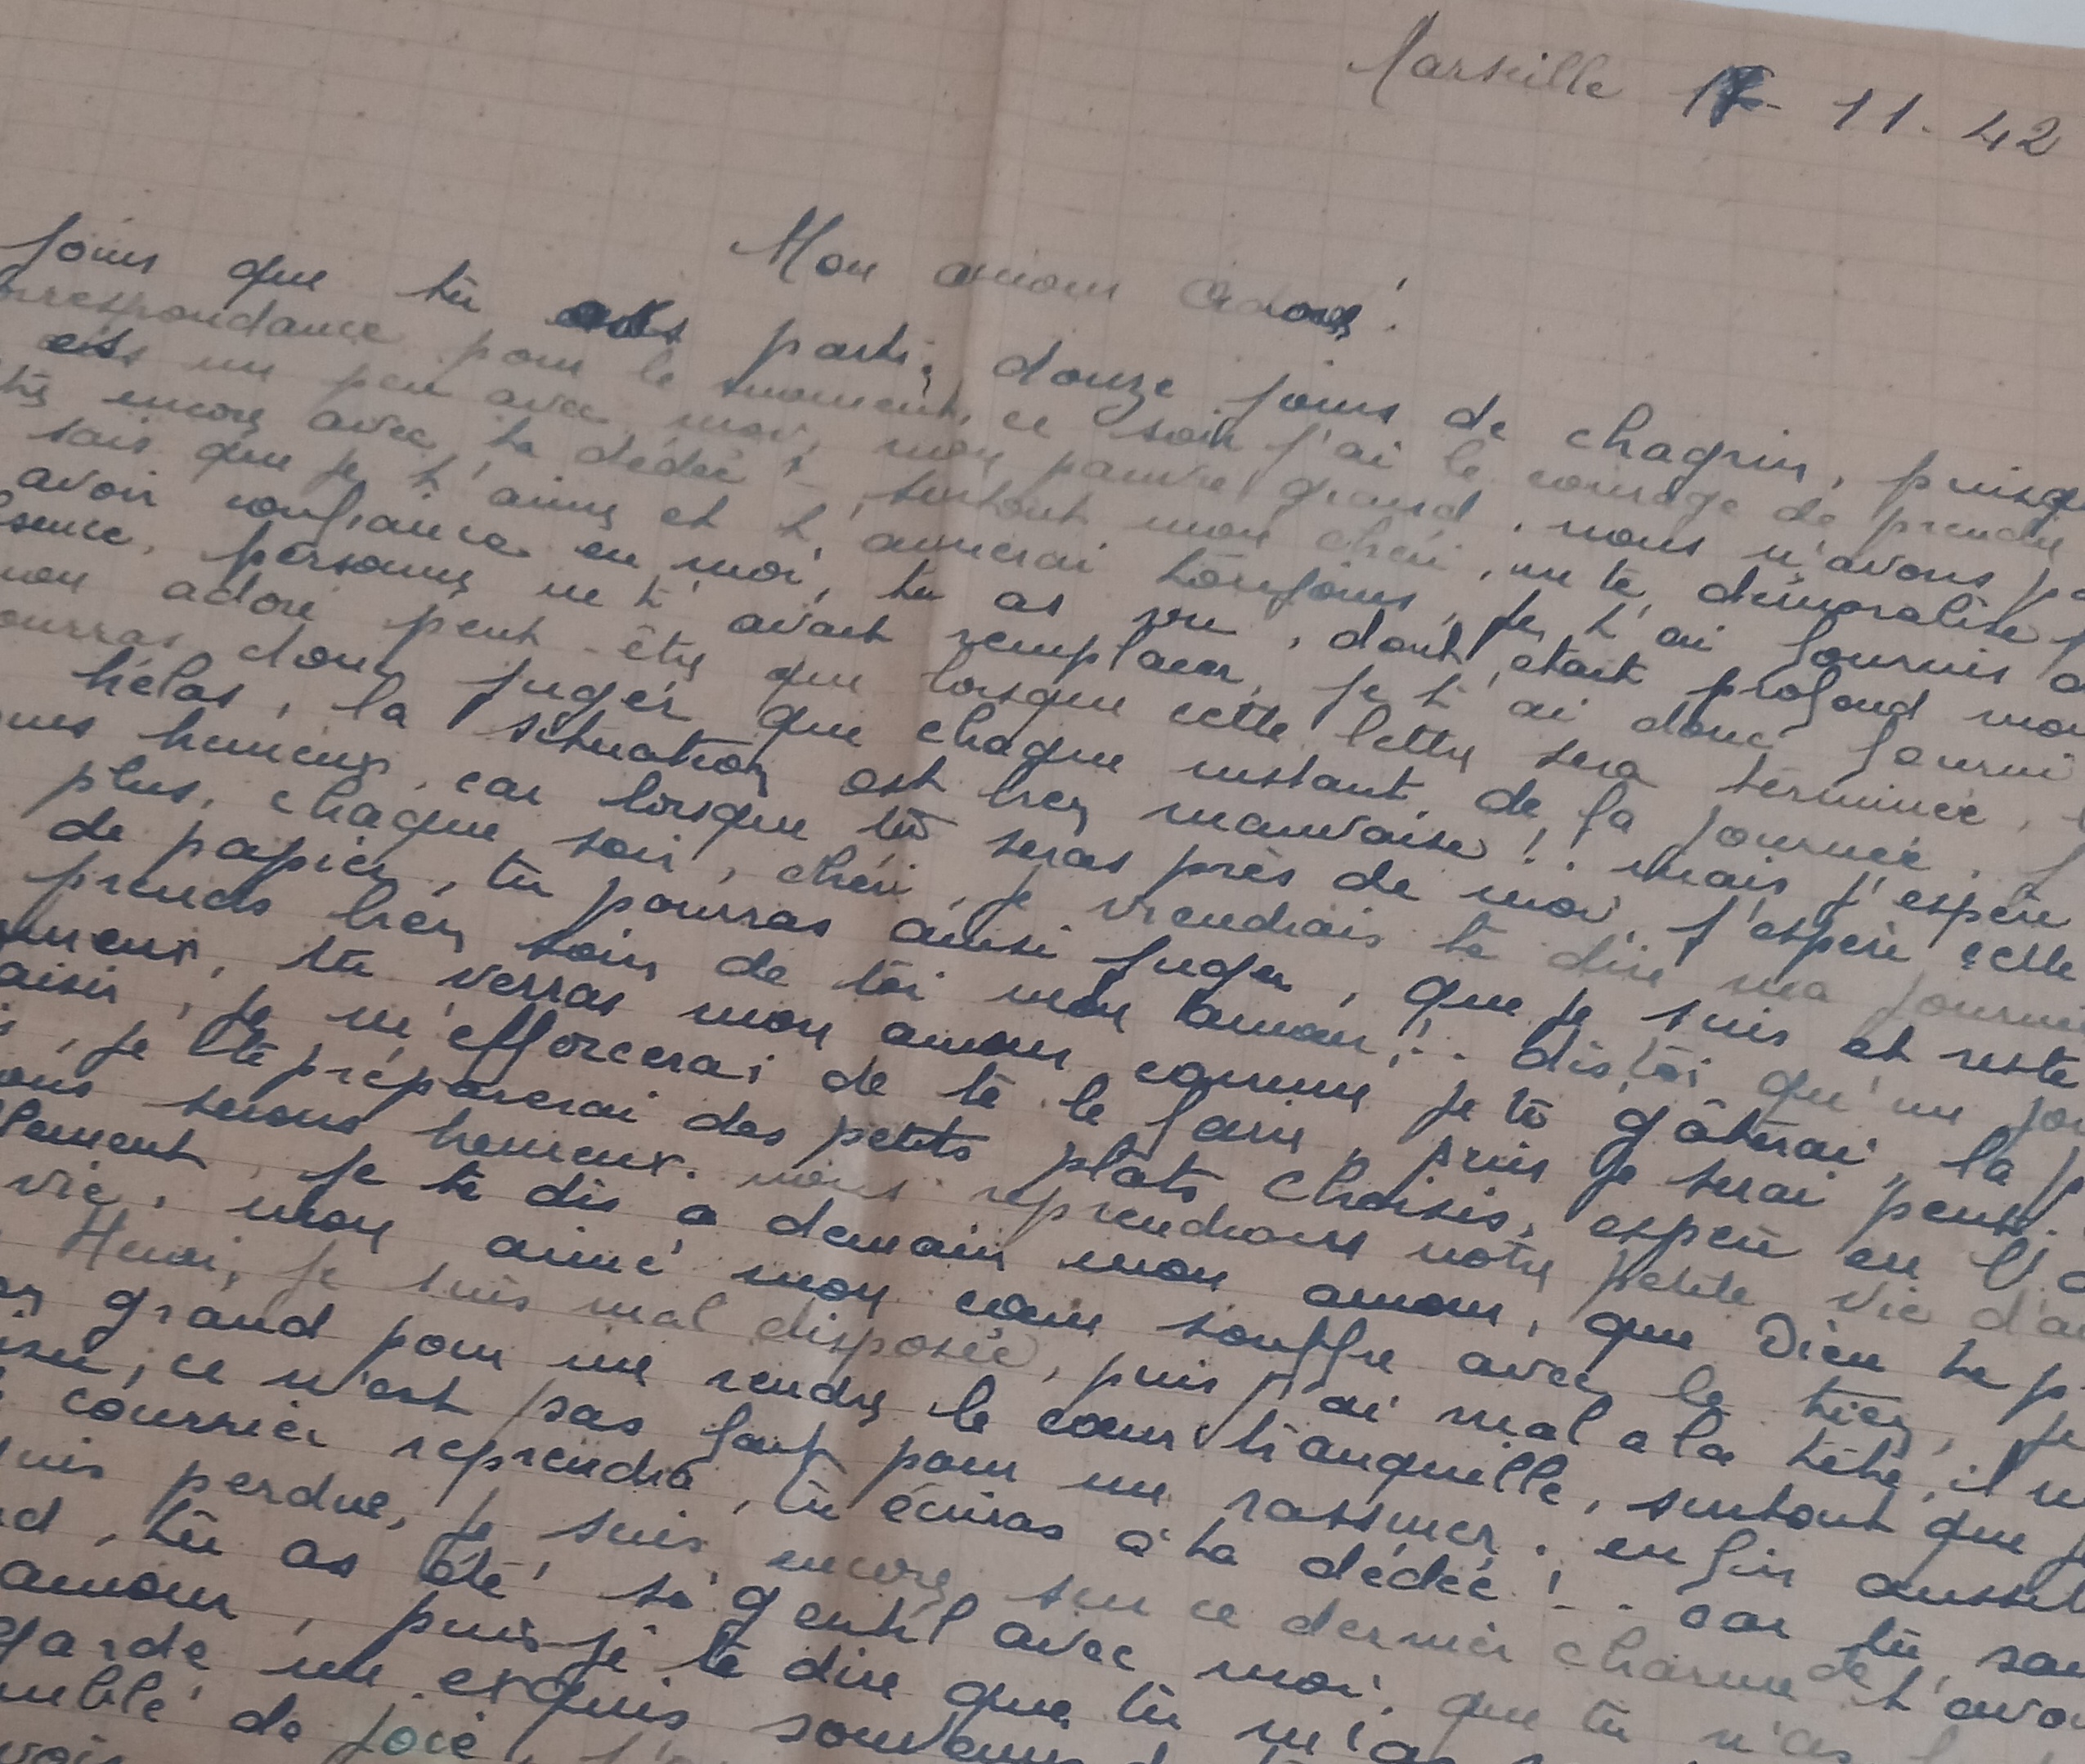 Marseille 17- 11-42
Mon amour Adoré!
jours que tu es parti, douze jours de chagrin, puisqu
rrespondance pour le moment, ce soir j'ai le courage de prendre
un peu avec moi, mon pauvre grand, nous n'avons pa
encore avec ta dédée! surtout mon chéri, ne te démoralise p
sais que je t'aime et t'aimerai toujours, je t'ai fournis
avoir confiance en moi, tu as vu, dont était profond mon
sence, personne ne t'avait remplacer, je t'ai donc fourni
mon adoré peut-être que lorsque cette lettre sera terminée,
ourras donc juger que chaque instant de la journée, j
hélas, la situation est bien mauvaise!.. mais j'espère
heureux, car lorsque tu seras près de moi, j'espère cette
plus, chaque soir, chéri, je viendrais te dire ma journé
de papier, tu pourras ainsi juger, que je suis et reste
prends bien soin de toi mon amour!.. dis toi qu'un jou
tu verras mon amour comme je te gâterai, la p
aisir, je m'efforcerai de te le faire, puis je serai peut-
, je te préparerai des petits plats choisis, espère en l'a
ous serons heureux. nous reprendrons notre petite vie d'a
lement, je te dis a demain mon amour, que Dieu te p
vie, mon aimé mon cœur souffre avec le tien, je
Henri, je suis mal disposée, puis j'ai mal a la tête, il
grand pour me rendre le cœur tranquille, surtout que je
ce n'est pas fait pour me rassurer. enfin aussit
courrier reprendra, tu écriras a ta dédée!.. car tu sai
uis perdue, je suis encore sur ce dernier charme de t'avo
d, tu as été si gentil avec moi, que tu n'as
amour, puis-je te dire que tu m'as
garde un exquis souvenir
mblé de joie